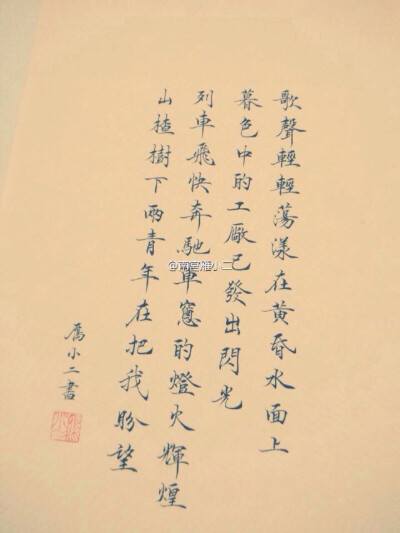 歌聲輕輕蕩漾在黃昏水面上
暮色中的工廠已發出閃光
列車飛快奔馳車窻的燈火輝煌
山楂樹下兩青年在把我盼望
鴈小二書
@南宫雁小二